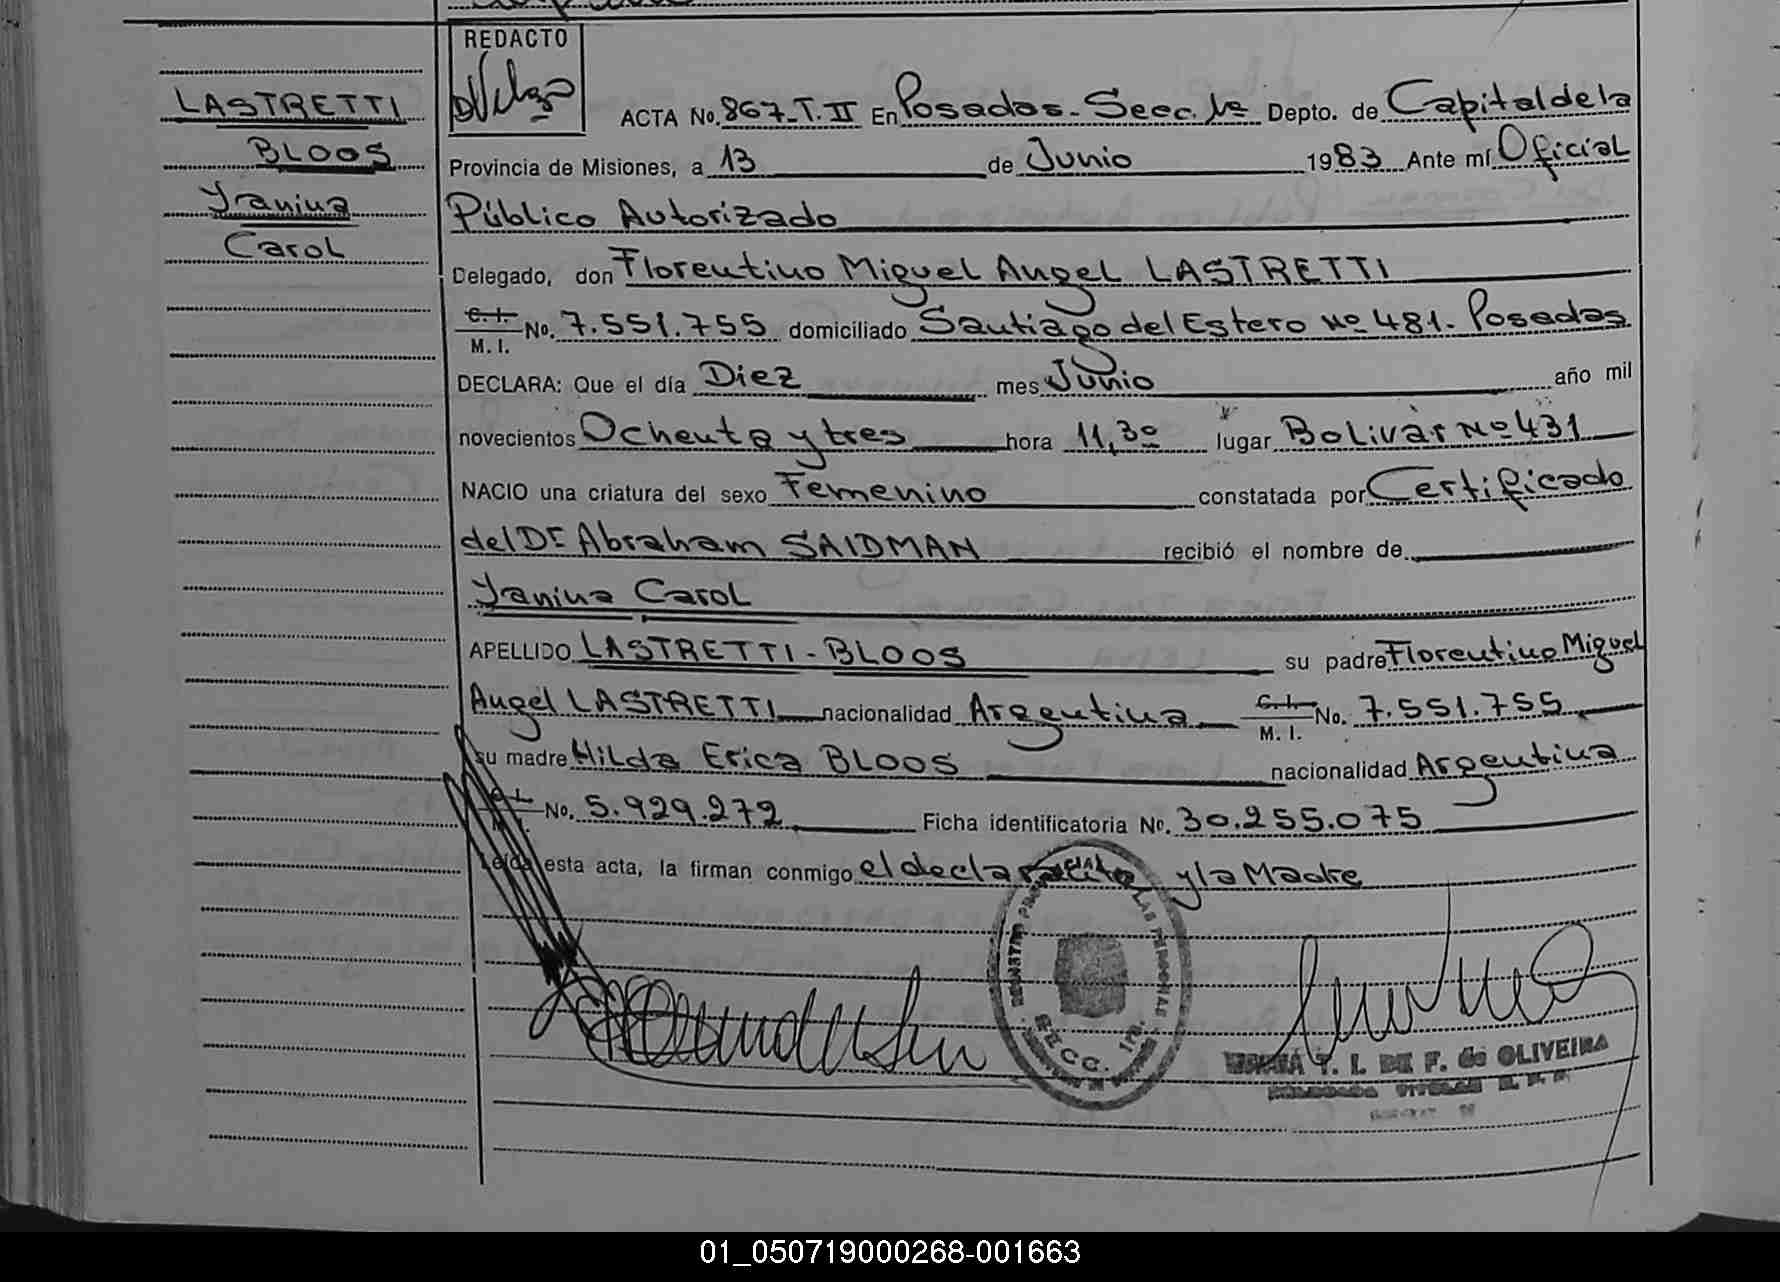 REDACTO
LASTRETTI
BLOOS
Yanina
Carol
ACTA No. 867-T.II En Posadas-Secc. 1ª Depto. de Capital de la
Provincia de Misiones, a 13 de Junio 1983 Ante mí Oficial
Público Autorizado
Delegado, don Florentino Miguel Angel LASTRETTI
C.I. M.I. No. 7.551.755 domiciliado Santiago del Estero Nº 481. Posadas
DECLARA: Que el día Diez mes Junio año mil
novecientos Ochenta y tres hora 11,30 lugar Bolivar Nº 431
NACIO una criatura del sexo Femenino constatada por Certificado
del Dr Abraham SAIDMAN recibió el nombre de
Yanina Carol
APELLIDO LASTRETTI-BLOOS su padre Florentino Miguel
Angel LASTRETTI nacionalidad Argentina C.I. M.I. No. 7.551.755
su madre Hilda Erica BLOOS nacionalidad Argentina
C.I. M.I. No. 5.929.272 Ficha identificatoria No. 30.255.075
Leída esta acta, la firman conmigo el declarante y la Madre
SECC. 1ra.
T. I. DE F. de OLIVEIRA
01_050719000268-001663